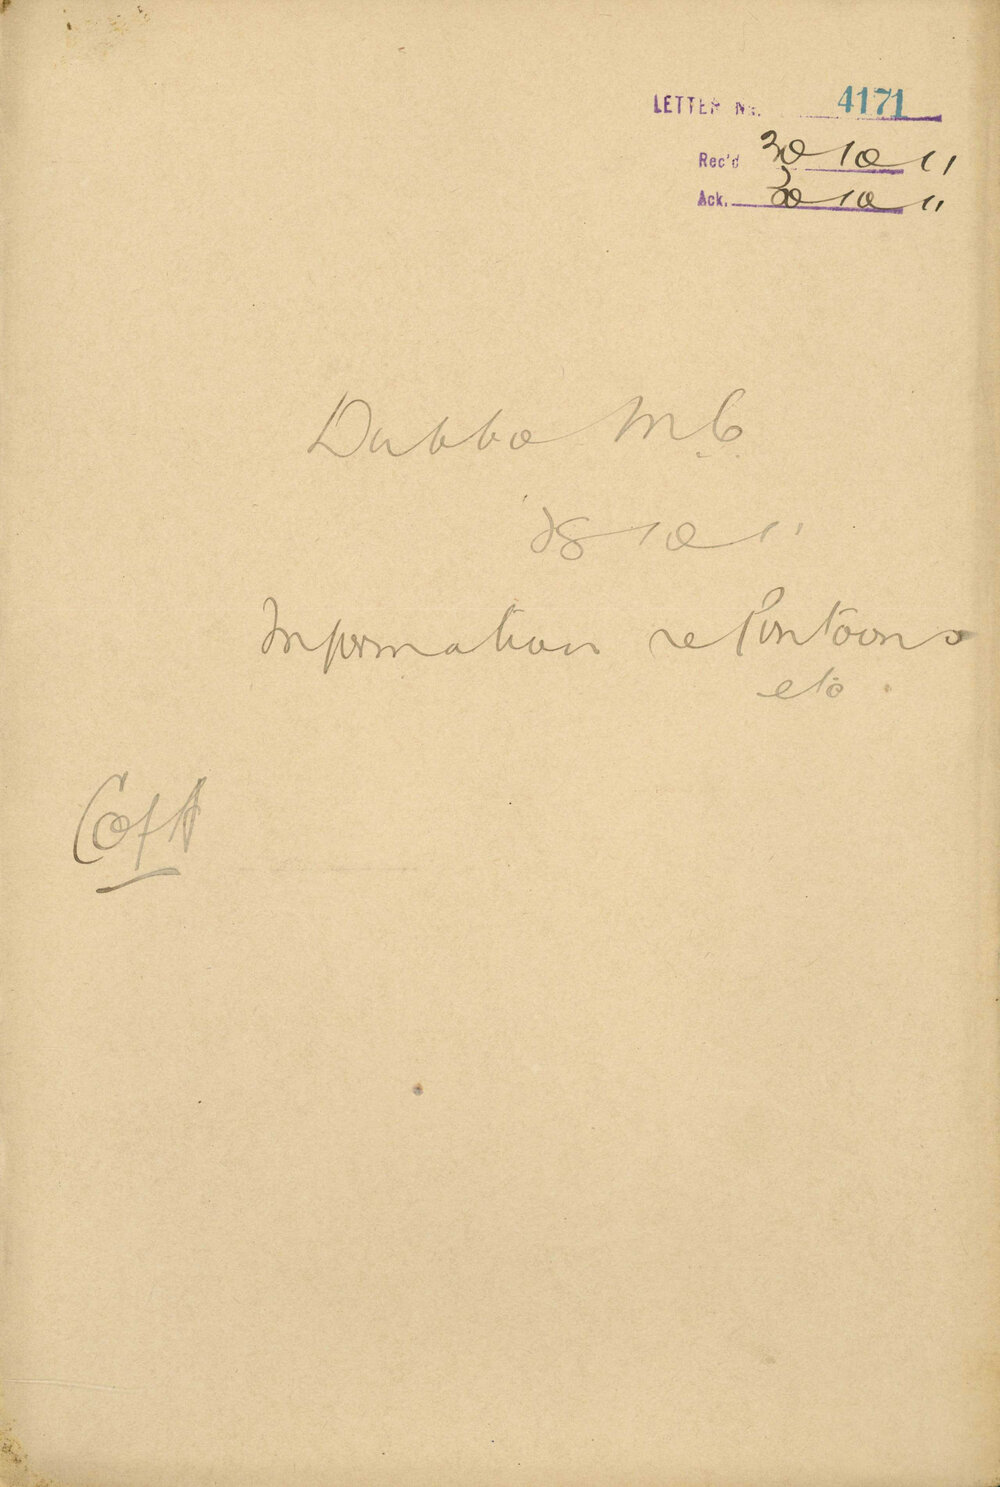 LETTER No. 4171
Rec'd 30 10 11
Ack. 30 10 11
Dubbo M.C.
28 10 11
Information re Pontoons
etc.
C of A